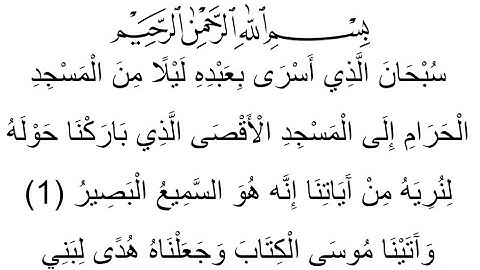 بِسْمِ اللَّهِ الرَّحْمَٰنِ الرَّحِيمِ
سُبْحَانَ الَّذِي أَسْرَى بِعَبْدِهِ لَيْلًا مِنَ الْمَسْجِدِ
الْحَرَامِ إِلَى الْمَسْجِدِ الْأَقْصَى الَّذِي بَارَكْنَا حَوْلَهُ
لِنُرِيَهُ مِنْ آَيَاتِنَا إِنَّه هُوَ السَّمِيعُ الْبَصِيرُ (1)
وَآَتَيْنَا مُوسَى الْكِتَابَ وَجَعَلْنَاهُ هُدًى لِبَنِي